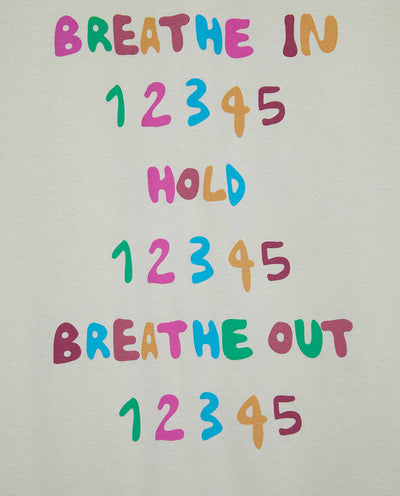 BREATHE IN
1 2 3 4 5
HOLD
1 2 3 4 5
BREATHE OUT
1 2 3 4 5